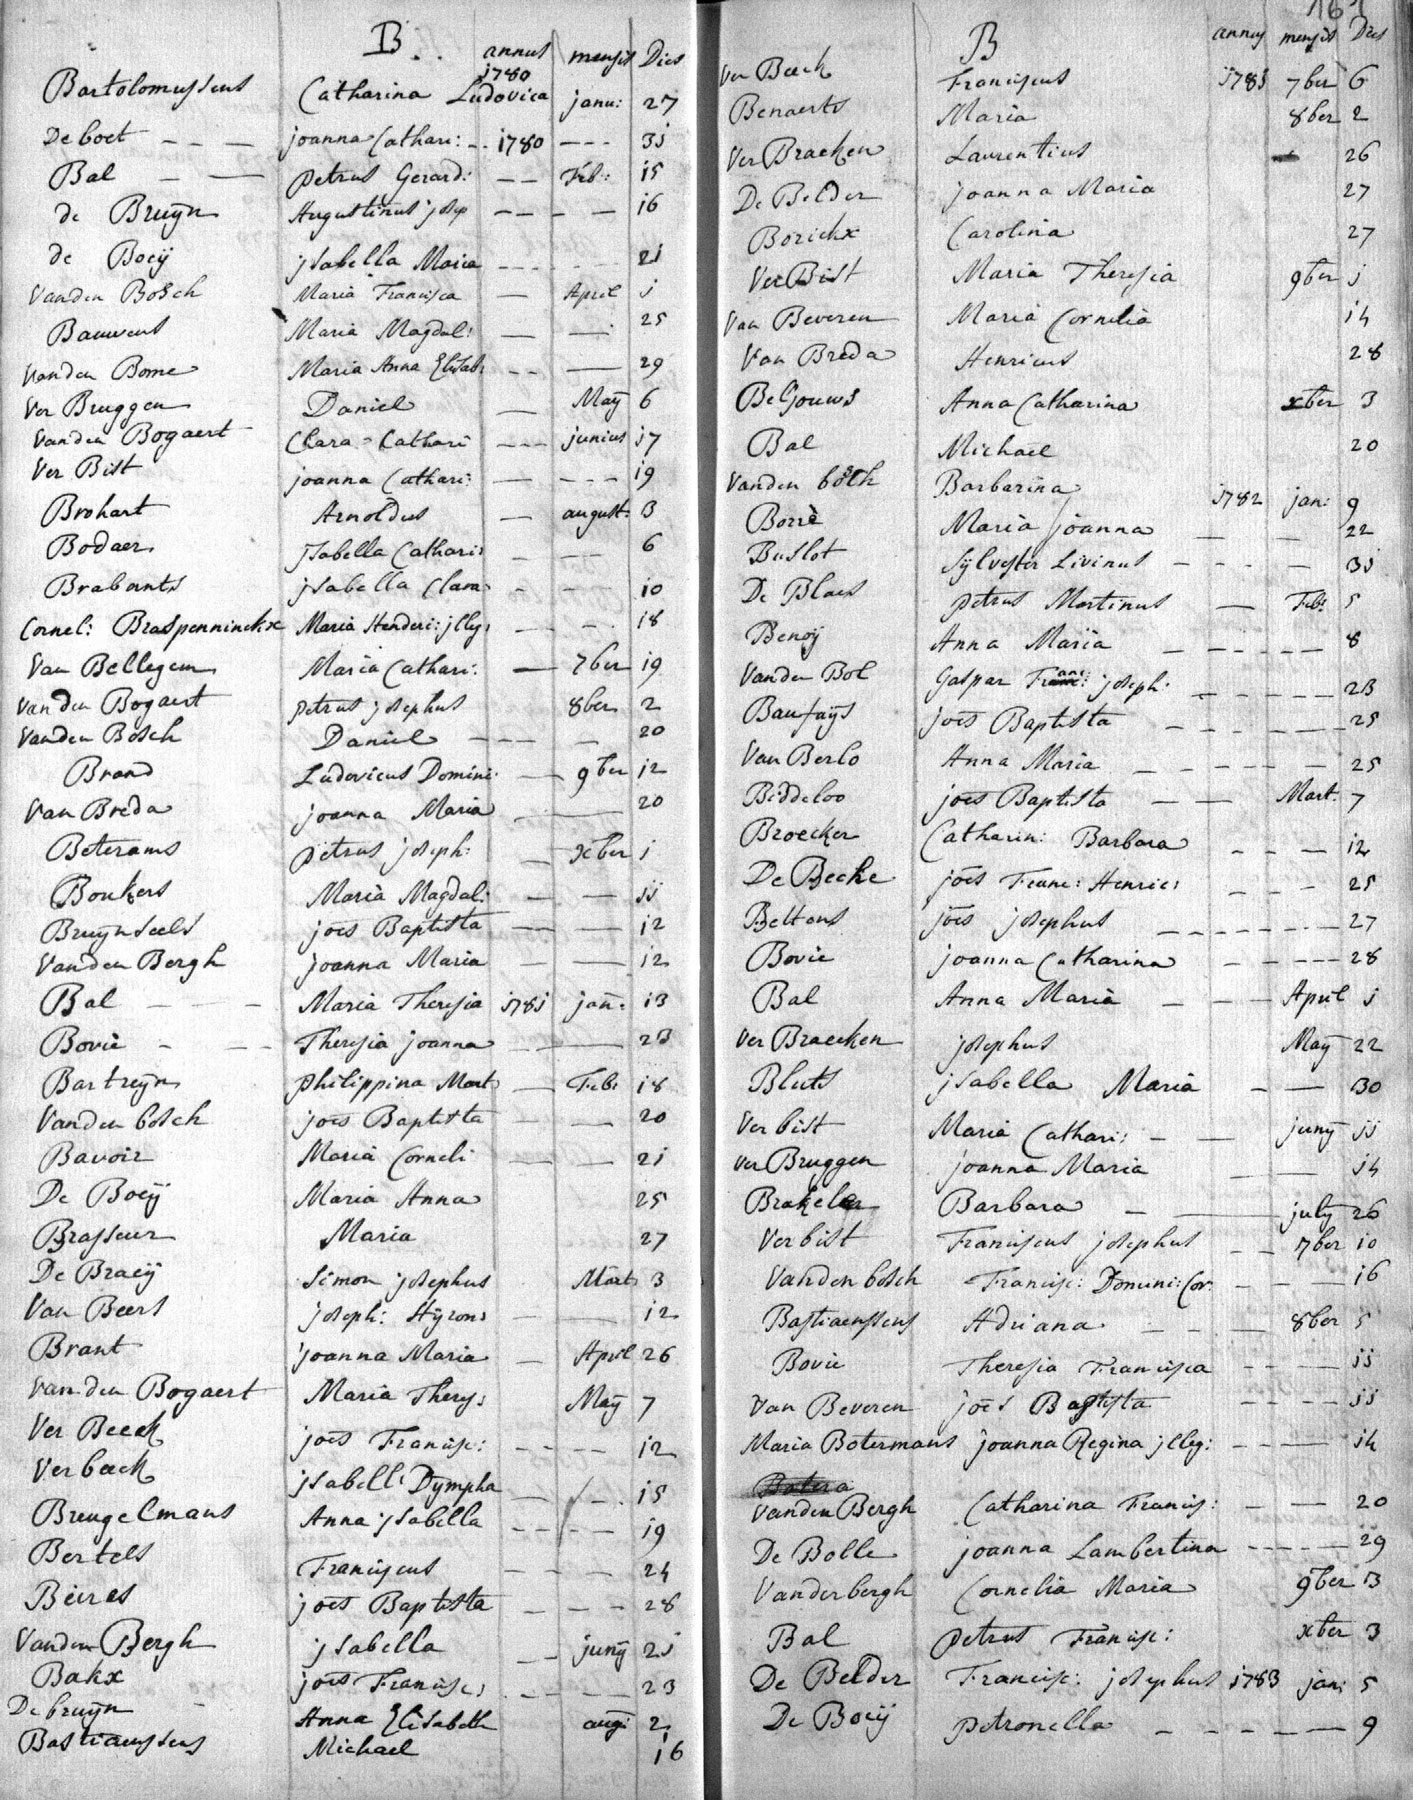 B. annus mensis Dies
1780
Bartolomussens Catharina Ludovica janu: 27
De boet - - - joanna Cathari: - - 1780 - - - 3j
Bal - - petrus Gerard: - - Feb: i5
de Bruÿn Augustinus josep - - - - i6
de Boeÿ jsabella Maria - - - - - 2j
Vanden Bosch Maria Francisca - April j
Bauwens Maria Magdal: - - 25
Vanden Borne Maria Anna Elisab: - - - 29
Ver Bruggen Daniel - Maÿ 6
Vanden Bogaert Clara - Cathari - - - junius j7
Ver Bist joanna Cathari: - - - - i9
Brohart Arnoldus - august: 3
Bodaer jsabella Cathari: - - - 6
Brabants jsabella Clara - - - - io
Cornel: Braspenninckx Maria Henderi: jlleg: - - - - i8
Van Bellegem Maria Cathari: - 7ber i9
Van den Bogaert petrus josephus 8ber 2
Vanden Bosch Daniel - - - - 20
Brand Ludovicus Domini: - 9ber i2
Van Breda joanna Maria - - 20
Beterams petrus joseph: - xber j
Boukers Maria Magdal: - - jj
Bruÿnseels joēs Baptista - - - i2
Vanden Bergh joanna Maria - - i2
Bal - - - Maria Theresia j78j jan: i3
Bovie - - - Theresia joanna - - 23
Bartreÿn philippina Mart - Feb: i8
Vanden bosch joēs Baptista - - 20
Bavoir Maria Corneli - - 2i
De Boeÿ Maria Anna 25
Brasseur Maria 27
De Braeÿ Simon josephus Mart 3
Van Beers joseph: Hÿron: - - i2
Brant joanna Maria - April 26
Van den Bogaert Maria Theres: Maÿ 7
Ver Beeck joēs Francisc: - - - - i2
Verbeeck jsabell: Dÿmpha - - - i5
Breugelmans Anna jsabella - - - - - i9
Bertels Franciscus - - - - 24
Beires joēs Baptista - - - - 28
Vanden Bergh jsabella - - junÿ 2j
Bakx joēs Francisc: - - - - - 23
De bruÿn - Anna Elisabeth aug: 2
Bastiaenssens Michael i6
161
B annus mensis Dies
Ver Beeck Franciscus j78j 7ber 6
Benaerts Maria 8ber 2
Ver Braeken Laurentius 26
De Belder joanna Maria 27
Borickx Carolina 27
Ver Bist Maria Theresia 9ber j
Van Beveren Maria Cornelia i4
Van Breda Henricus 28
BeGouws Anna Catharina xber 3
Bal Michael 20
Vanden bosch Barbarina j782 jan: 9
Borrè Maria joanna - - 22
Buslot Sÿlvester Livinus - - - - 3j
De Blaes petrus Martinus - Feb: 5
Benoÿ Anna Maria - - - - - - 8
Vanden Bol Gaspar Franc: joseph: - - - - - - 23
Baufaÿs joēs Baptista - - - - - - 25
Van Berlo Anna Maria - - - - - - 25
Biddeloo joēs Baptista - - Mart. 7
Broecker Catharin: Barbara - - - - i2
De Becke joēs Franc: Henric: - - - - 25
Beltens joēs josephus - - - - - - - 27
Bovie joanna Catharina - - - - - 28
Bal Anna Maria - - - April j
Ver Braecken josephus Maÿ 22
Bluts jsabella Maria - - 30
Ver bist Maria Cathari: - - junÿ jj
Ver Bruggen joanna Maria - j4
Brakeler Barbara - - julÿ 26
Verbist Franciscus josephus - - 7ber io
Vanden bosch Francisc: Domini: Cor: - - - - i6
Bastiaenssens Adriana - - - 8ber 5
Bovie Theresia Francisca - - - - jj
Van Beveren joēs Baptista - - - - jj
Maria Botermans joanna Regina jlleg: - - - - j4
Vanden Bergh Catharina Francis: - - - 20
De Bolle joanna Lambertina - - - - - 29
Vanderbergh Cornelia Maria 9ber 3
Bal petrus Francisc: xber 3
De Belder Francisc: josephus j783 jan: 5
De Boeÿ petronella - - - - - - 9